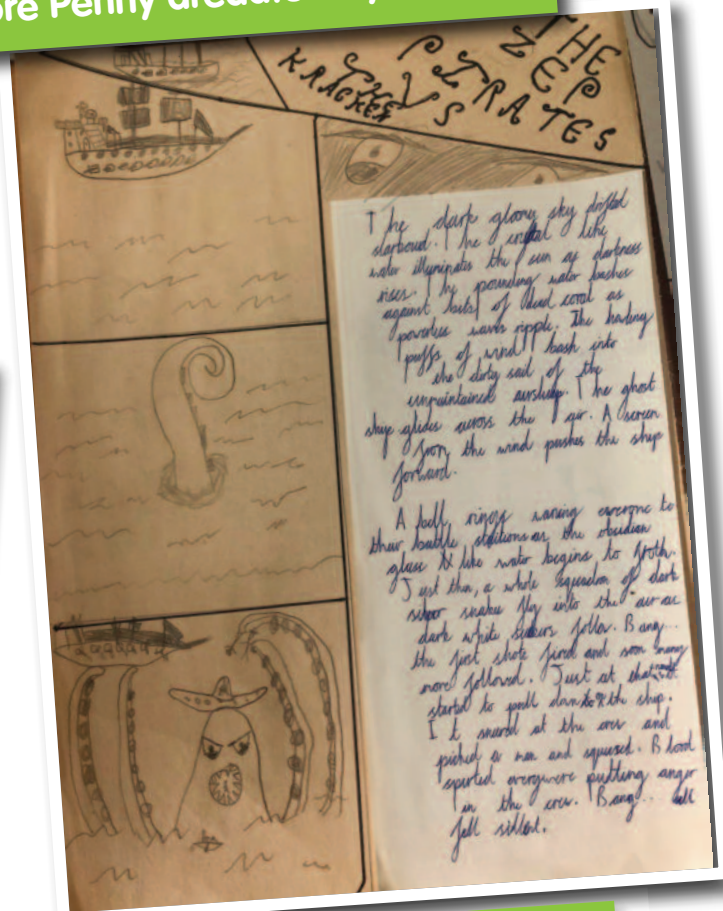 ore Penny dreadf
THE
ZEP
PIRATES
VS
THE
KRACKEN
The dark gloomy sky drifted
starboard. The crystal like
water illuminates the sun as darkness
rises. The pounding water bashes
against of dead coral as
powerless waves ripple. The howling
puffs of wind bash into
the dirty sail of the
unmaintained airship. The ghost
ship glides across the air. A scream
from the wind pushes the ship
forward.
A bell rings warning everyone to
their battle stations as the obsidian
glass like water begins to froth.
Just then, a whole squadron of dark
snakes fly into the air as
dark white follow. Bang...
the first shots fired and soon many
more followed. Just at that
started to pull down the ship.
It snared at the crew and
picked a man and squezed. Blood
spurted everywere putting anger
in the crew. Bang... all
fell sillent.